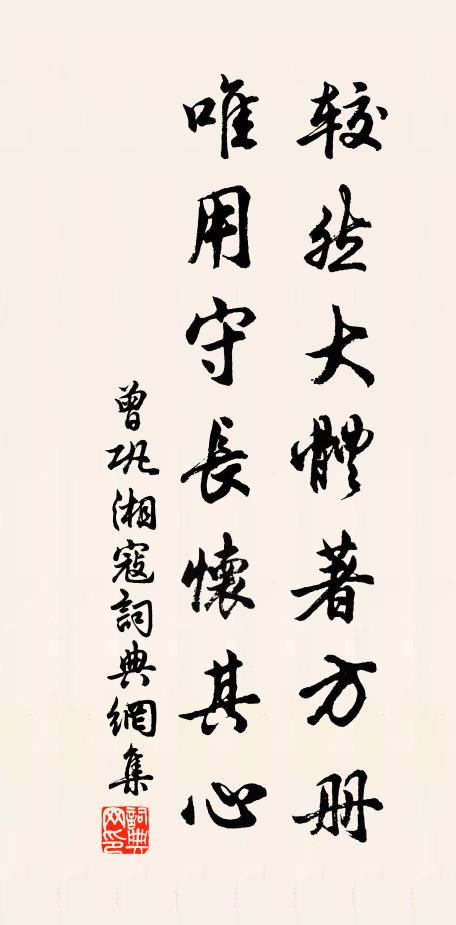 較然大體著方册
唯用守長懷其心
曾鞏湘寇詞典網集
詞典網印